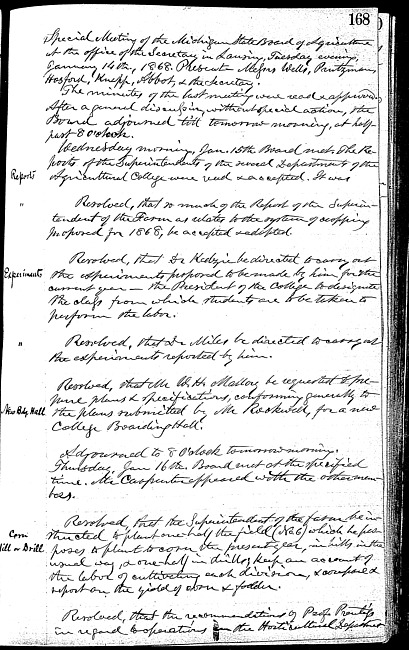 168
Special Meeting of the Michigan State Board of Agriculture
at the office of the Secretary in Lansing, Tuesday evening,
January 14th, 1868. Present Messrs Wells, Prutzman,
Hosford, Knepp, Abbot, & the Secretary.
The minutes of the last meeting were read & approved.
After a general discussion, without special action, the
Board adjourned till tomorrow morning, at half-
past 8 o'clock.
Wednesday morning, Jan. 15th Board met. The Re-
ports of the Superintendents of the several Department of the
Reports Agricultural College were read & accepted. It was
" Resolved, that so much of the Report of the Superin-
tendent of the Farm as relates to the system of cropping
proposed for 1868, be accepted & adopted
Resolved, that Dr Kedzie be directed to carry out
Experiments the experiments proposed to be made by him for the
current year — the President of the College to designate
the class from which students are to be taken to
perform the labor.
" Resolved, that Dr Miles be directed to carry out
the experiments reported by him.
Resolved, that Mr W. H. Mallory be requested to pre-
pare plans & specifications, conforming generally to
New Bdg Hall the plans submitted by Mr Rockwell, for a new
College Boarding Hall.
Adjourned to 8 o'clock tomorrow morning.
Thursday, Jan 16th. Board met at the specified
time. Mr Carpenter appeared with the other mem-
bers.
Resolved, that the Superintendent of the farm be in-
Corn structed to plant one half the field (No 6) which he pro-
Hill or Drill poses to plant to corn the present year, in hills, in the
usual way, & one half in drills, keep an account of
the labor of cultivating each division, & compare &
report on the yield of corn & fodder.
Resolved, that the recommendations of Prof. Prentiss
in regard to operations in the Horticultural Department